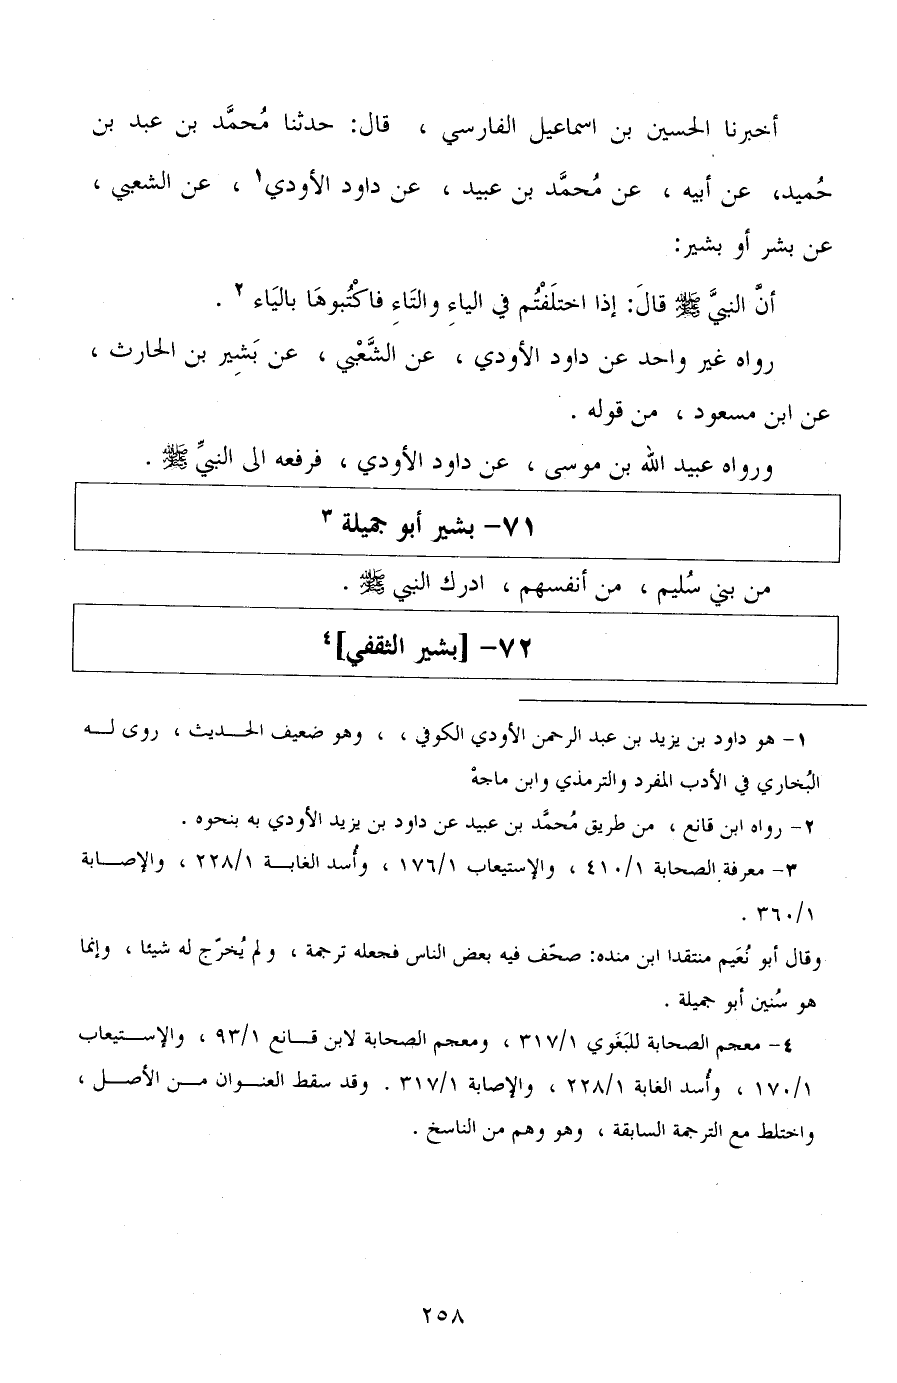 أخبرنا الحسين بن اسماعيل الفارسي ، قال: حدثنا مُحمَّد بن عبد بن
حُميد، عن أبيه ، عن مُحمَّد بن عبيد ، عن داود الأودي١ ، عن الشعبي ،
عن بشر أو بشير:
أنَّ النبيَّ ﷺ قالَ: إذا اختلَفْتُم في الياءِ والتَاءِ فاكْتُبوهَا باليَاء ٢ .
رواه غير واحد عن داود الأودي ، عن الشَّعْبي ، عن بَشِير بن الحارث ،
عن ابن مسعود ، من قوله .
ورواه عبيد الله بن موسى ، عن داود الأودي ، فرفعه الى النبيِّ ﷺ .
٧١- بشير أبو جميلة ٣
من بني سُليم ، من أنفسهم ، ادرك النبي ﷺ .
٧٢- [بشير الثقفي]٤
١- هو داود بن يزيد بن عبد الرحمن الأودي الكوفي ، ، وهو ضعيف الحـديث ، روى لـه
البُخاري في الأدب المفرد والترمذي وابن ماجهْ
٢- رواه ابن قانع ، من طريق مُحمَّد بن عبيد عن داود بن يزيد الأودي به بنحوه .
٣- معرفة الصحابة ٤١٠/١ ، والإستيعاب ١٧٦/١ ، وأُسد الغابـة ٢٢٨/١ ، والإصـابة
٣٦٠/١ .
وقال أبو نُعَيم منتقدا ابن منده: صحّف فيه بعض الناس فجعله ترجمة ، ولم يُخرّج له شيئا ، وإنما
هو سُنين أبو جميلة .
٤- معجم الصحابة للبَغَوي ٣١٧/١ ، ومعجم الصحابة لابن قـانع ٩٣/١ ، والإسـتيعاب
١٧٠/١ ، وأُسد الغابة ٢٢٨/١ ، والإصابة ٣١٧/١ . وقد سقط العنـوان مـن الأصـل ،
واختلط مع الترجمة السابقة ، وهو وهم من الناسخ .
٢٥٨